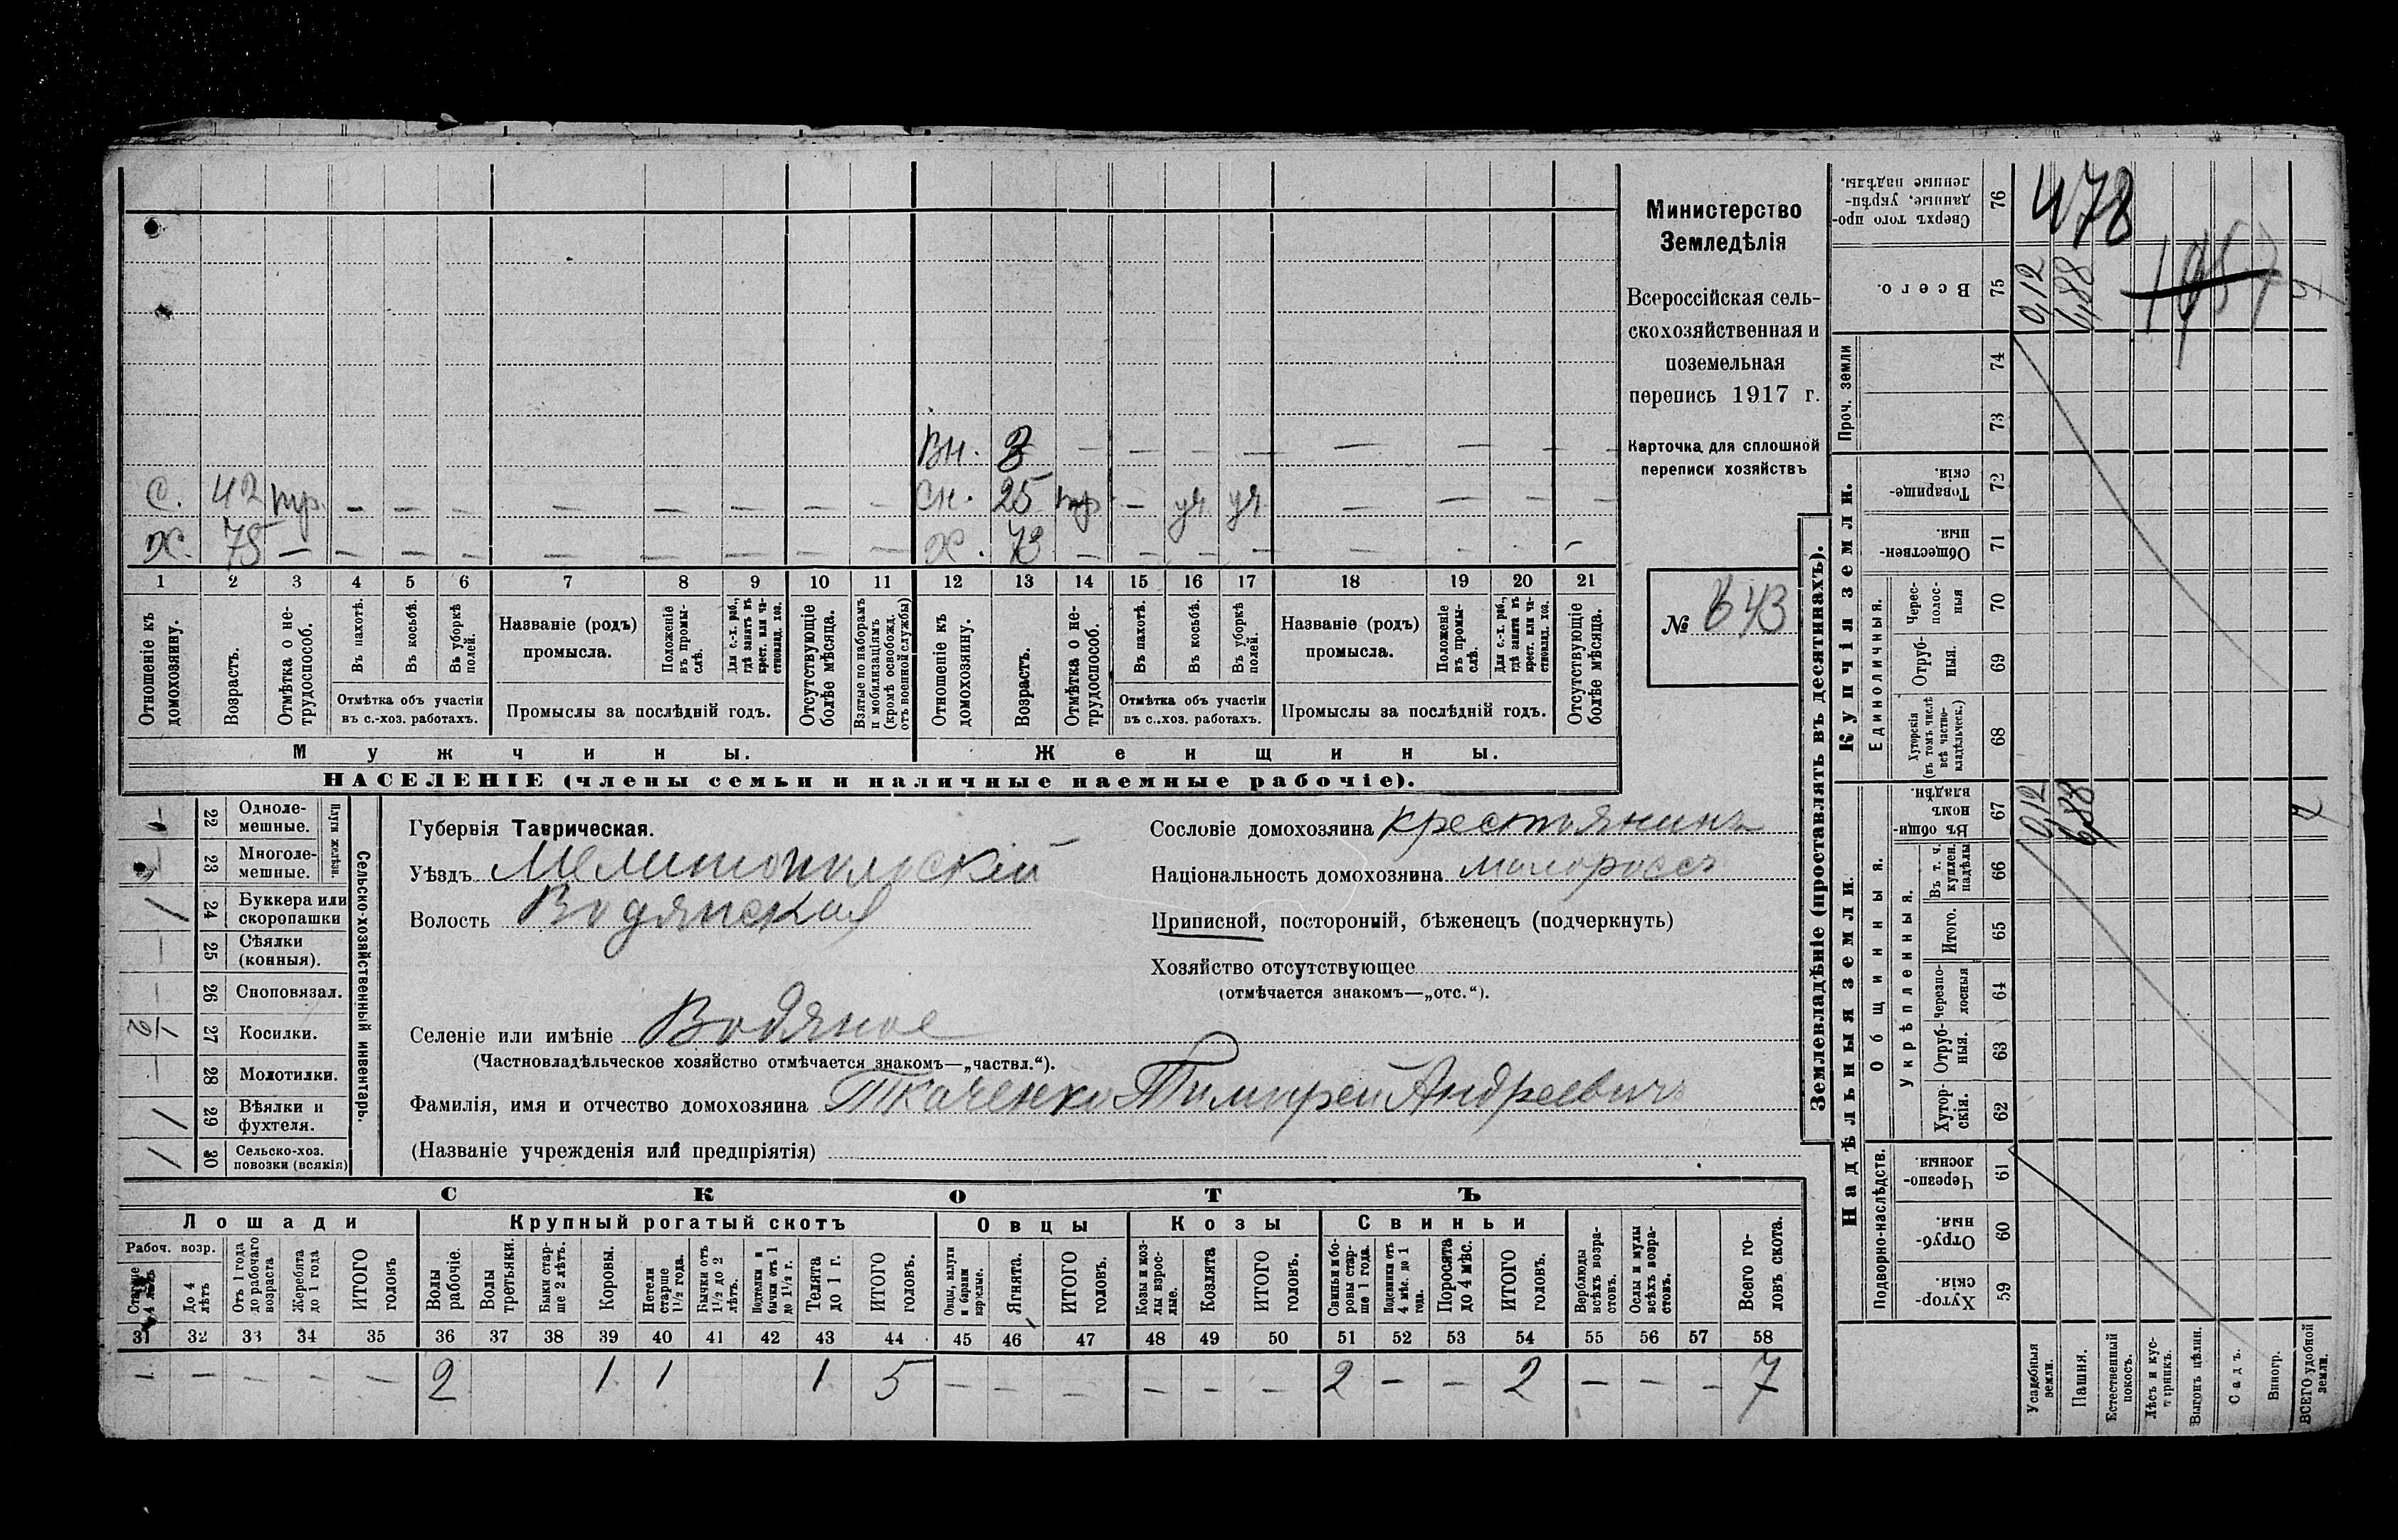 Министерство
Земледѣлія
Всероссійская сель-
скохозяйственная и
поземельная
перепись 1917 г.
Карточка для сплошной
переписи хозяйствъ
№ 643
Вн. 3 — — — — — — — —
С. 42 тр. — — — — — — — — Сн. 25 тр. — уч. уч. — — — —
Х. 75 — — — — — — — — — Х. 73 — — — — — — — —
1 2 3 4 5 6 7 8 9 10 11 12 13 14 15 16 17 18 19 20 21
Отношеніе къ домохозяину.
Возрастъ.
Отмѣтка о не-трудоспособ.
Въ пахотѣ.
Въ косьбѣ.
Въ уборкѣ полей.
Отмѣтка объ участіи
въ с.-хоз. работахъ.
Названіе (родъ)
промысла.
Положеніе въ промы-слѣ.
Для с.-х. раб., гдѣ занятъ въ крест. или ча-стновлад. хоз.
Промыслы за послѣдній годъ.
Отсутствующіе болѣе мѣсяца.
Взятые по наборамъ и мобилизаціямъ (кромѣ освобожд. отъ военной службы)
Отношеніе къ домохозяину.
Возрастъ.
Отмѣтка о не-трудоспособ.
Въ пахотѣ.
Въ косьбѣ.
Въ уборкѣ полей.
Отмѣтка объ участіи
въ с.-хоз. работахъ.
Названіе (родъ)
промысла.
Положеніе въ промы-слѣ.
Для с.-х. раб., гдѣ занята въ крест. или ча-стновлад. хоз.
Промыслы за послѣдній годъ.
Отсутствующіе болѣе мѣсяца.
Мужчины.
Женщины.
НАСЕЛЕНІЕ (члены семьи и наличные наемные рабочіе).
Сельско-хозяйственный инвентарь.
Плуги желѣзн.
22 Одноле-мешные.
23 Многоле-мешные.
1 24 Буккера или скоропашки
— 25 Сѣялки (конныя).
— 26 Сноповязал.
1/2 27 Косилки.
— 28 Молотилки.
1 29 Вѣялки и фухтеля.
1 30 Сельско-хоз. повозки (всякія)
Губернія Таврическая.
Уѣздъ Мелитопольскій
Волость Водянская
Селеніе или имѣніе Водяное
(Частновладѣльческое хозяйство отмѣчается знакомъ—„частвл.“).
Фамилія, имя и отчество домохозяина Ткаченко Тимофей Андреевичъ
(Названіе учрежденія или предпріятія)
Сословіе домохозяина крестьянинъ
Національность домохозяина малороссъ
Приписной, посторонній, бѣженецъ (подчеркнуть)
Хозяйство отсутствующее
(отмѣчается знакомъ—„отс.“).
СКОТЪ
Лошади
Крупный рогатый скотъ
Овцы
Козы
Свиньи
Рабоч. возр.
Старше 4 лѣтъ
До 4 лѣтъ
Отъ 1 года до рабочаго возраста
Жеребята до 1 года
ИТОГО головъ
Волы рабочіе.
Волы третьяки.
Быки стар-ше 2 лѣтъ.
Коровы.
Нетели старше 1 1/2 года.
Бычки отъ 1 1/2 до 2 лѣтъ.
Подтелки и бычки отъ 1 до 1 1/2 г.
Телята до 1 г.
ИТОГО головъ.
Овцы, валухи и бараны взрослые.
Ягнята.
ИТОГО головъ.
Козы и коз-лы взрос-лые.
Козлята
ИТОГО головъ.
Свиньи и бо-ровы стар-ше 1 года.
Подсвинки отъ 4 мѣс. до 1 года.
Поросята до 4 мѣс.
ИТОГО головъ.
Верблюды всѣхъ возра-стовъ.
Ослы и мулы всѣхъ возра-стовъ.
Всего го-ловъ скота.
31 32 33 34 35 36 37 38 39 40 41 42 43 44 45 46 47 48 49 50 51 52 53 54 55 56 57 58
— — — — — 2 1 1 1 5 — — — — — — 2 — — 2 — — — 7
Землевладѣніе (проставлять въ десятинахъ).
Надѣльныя земли.
Купчія земли.
Проч. земли
Общинныя.
Укрѣпленныя.
Подворно-наслѣдств.
Единоличныя.
Сверхъ того про-данные, укрѣп-ленные надѣлы. 76
Всего. 75
74
73
Товарище-скія. 72
Обществен-ныя. 71
Черес-полос-ныя 70
Отруб-ныя. 69
Хуторскія (въ томъ числѣ всѣ частно-владѣльческ.) 68
Въ общин-номъ владѣн. 67
Въ т. ч. куплен. надѣлы 66
Итого. 65
черезпо-лосныя 64
Отруб-ныя. 63
Хутор-скія. 62
Черезпо-лосныя 61
Отруб-ныя. 60
Хутор-скія. 59
Усадебныя земли.
Пашня.
Естественный покосъ.
Лѣсъ и кус-тарникъ.
Выгонъ цѣлин.
Садъ.
Виногр.
ВСЕГО удобной земли.
478
1957
0,12
6,88
7
0,12
6,88
7